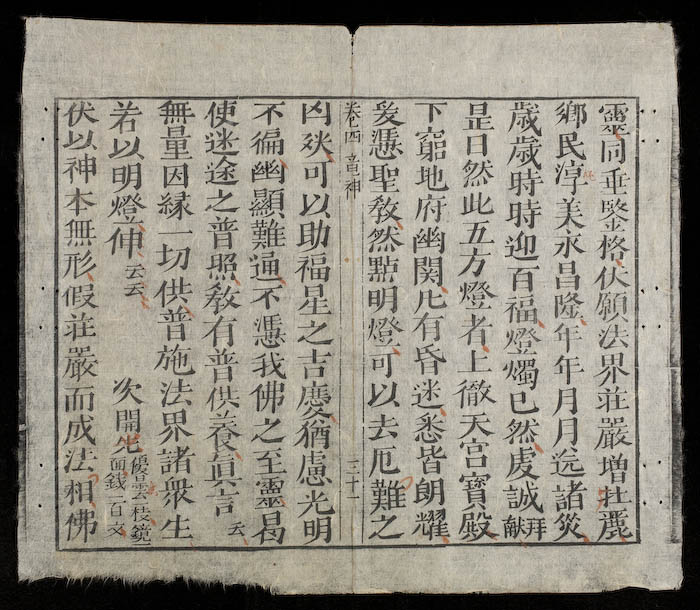 靈同垂鑒格伏願法界莊嚴增壮麗
鄉民淳美永昌隆年年月月远諸災
歲歲時時迎百福燈燭已然虔誠拜献
昰日然此五方燈者上徹天宫寳殿
下窮地府幽関凢有昏迷悉皆朗耀
爰憑聖教然點明燈可以去厄難之
卷四 竜神 三十一
凶殃可以助福星之吉慶猶慮光明
不徧幽顯難通不憑我佛之至靈曷
使迷途之普照教有普供養眞言云
無量因緣一切供普施法界諸衆生
若以明燈伸云云 次開先優曇枝鏡面錢一百文
伏以神本無形假莊嚴而成法相佛